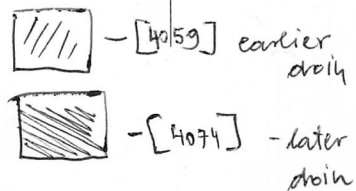 - [4059] earlier
drain
- [4074] - later
drain